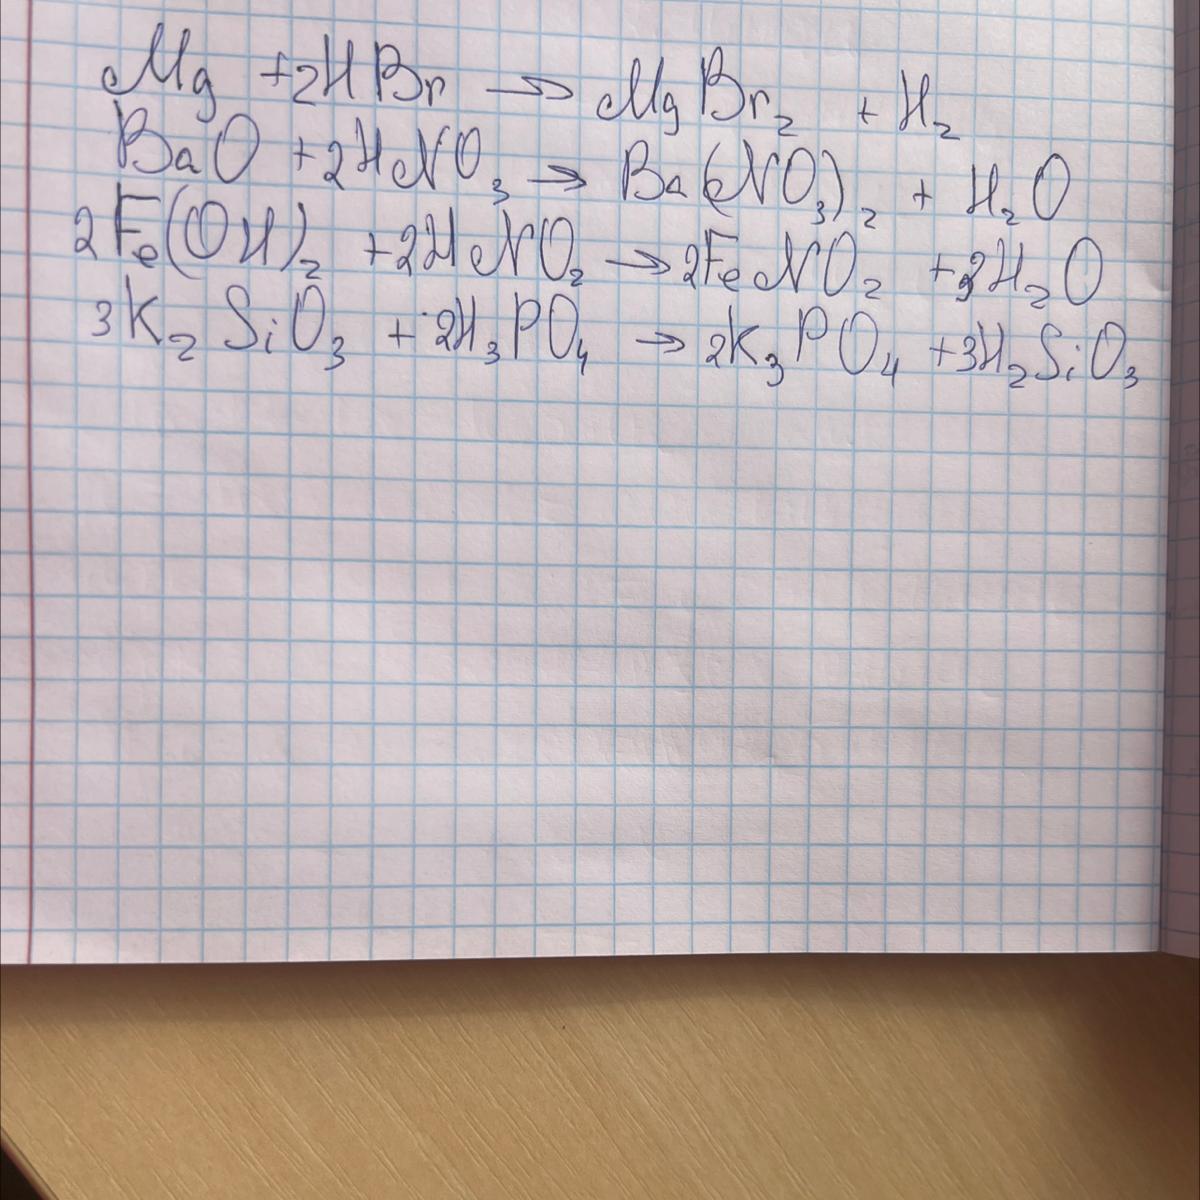 Mg + 2HBr → MgBr₂ + H₂
BaO + 2HNO₃ → Ba(NO₃)₂ + H₂O
2Fe(OH)₂ + 2HNO₂ → 2FeNO₂ + 3H₂O
3K₂SiO₃ + 2H₃PO₄ → 2K₃PO₄ + 3H₂SiO₃